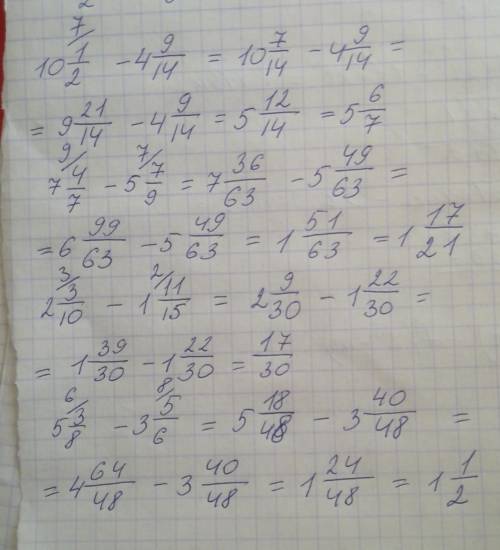 10 7/ 1/2 - 4 9/14 = 10 7/14 - 4 9/14 =
= 9 21/14 - 4 9/14 = 5 12/14 = 5 6/7
7 9/ 4/7 - 5 7/ 7/9 = 7 36/63 - 5 49/63 =
= 6 99/63 - 5 49/63 = 1 51/63 = 1 17/21
2 3/ 3/10 - 1 2/ 11/15 = 2 9/30 - 1 22/30 =
= 1 39/30 - 1 22/30 = 17/30
5 6/ 3/8 - 3 8/ 5/6 = 5 18/48 - 3 40/48 =
= 4 64/48 - 3 40/48 = 1 24/48 = 1 1/2